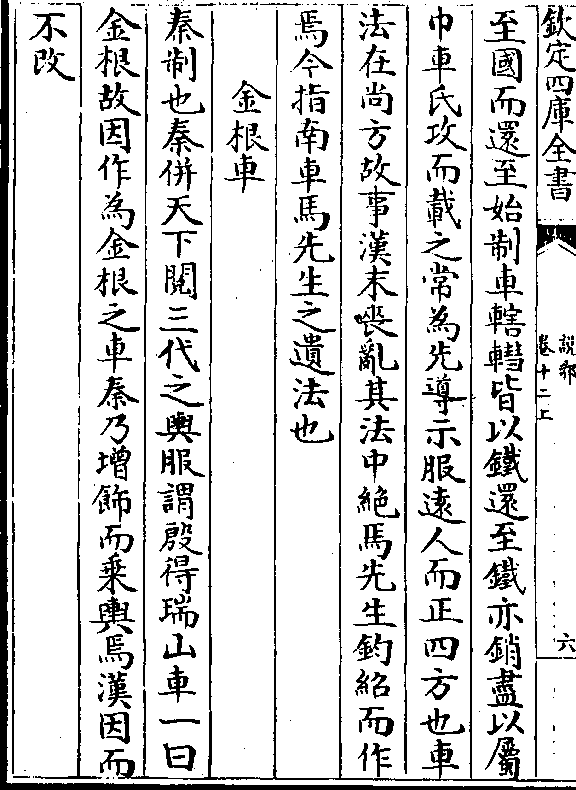 欽定四庫全書
說郛
卷十二上
六
至國而還至始制車轄轊皆以鐵還至鐵亦銷盡以屬
巾車氏攻而載之常為先導示服遠人而正四方也車
法在尚方故事漢末喪亂其法中絶馬先生鈞紹而作
焉今指南車馬先生之遺法也
金根車
秦制也秦併天下閱三代之輿服謂殷得瑞山車一曰
金根故因作為金根之車秦乃增飾而乗輿焉漢因而
不改